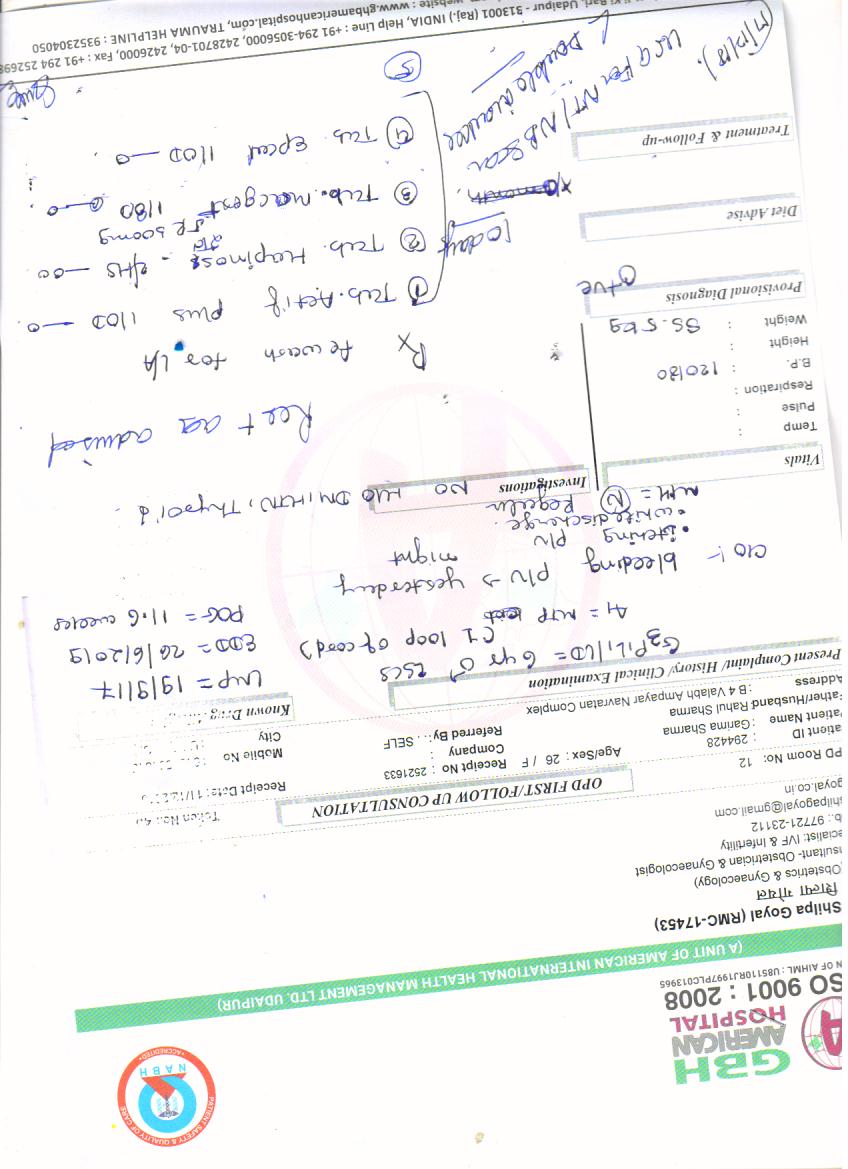 GBH
AMERICAN
HOSPITAL
SO 9001 : 2008
N OF AIHML : U85110RJ1997PLC013965
PATIENT SAFETY & QUALITY OF CARE
NABH
• ACCREDITED •
(A UNIT OF AMERICAN INTERNATIONAL HEALTH MANAGEMENT LTD. UDAIPUR)
Shilpa Goyal (RMC-17453)
शिल्पा गोयल
(Obstetrics & Gynaecology)
nsultant- Obstetrician & Gynaecologist
ecialist: IVF & Infertility
b.: 97721-23112
shilpagoyal@gmail.com
goyal.co.in
OPD FIRST/FOLLOW UP CONSULTATION
Token No.
PD Room No: 12
atient ID : 294428
Age/Sex : 26 / F
Receipt No : 2521633
Receipt Date : 11/12/
atient Name : Gamma Sharma
Company :
Mobile No
Father/Husband Rahul Sharma
Referred By: SELF
City
Address : B 4 Valabh Ampayar Navratan Complex
Present Complaint/ History/ Clinical Examination
Known Drug
G3P1L1 LD = 6 yr ♂ LSCS
LMP = 19/9/17
(1 loop of cord)
EDD = 26/6/2019
A1 = MTP
POG = 11.6 weeks
C/O :- bleeding P/V → yesterday night
• itching P/V
• white discharge.
M/H = N Regular
Vitals
Investigations
NO H/O DM, HTN, Thyroid.
Temp :
Pulse :
Respiration :
B.P. : 120/80
Height :
Weight : 55.5 kg
Rest as advised
Rx
for L/A
Provisional Diagnosis
O +ve
① Tab. Actif plus 1 OD —o
② Tab. - HS —oo
SR 300mg
③ Tab. 1 BD —o
④ Tab. 1 OD —o
⑤
10 days
Diet Advise
Treatment & Follow-up
USG for NT/NB scan
Double marker
Bari, Udaipur - 313001 (Raj.) INDIA, Help Line : +91 294-3056000, 2428701-04, 2426000, Fax : +91 294 252698
website : www.gbhamericanhospital.com, TRAUMA HELPLINE : 9352304050